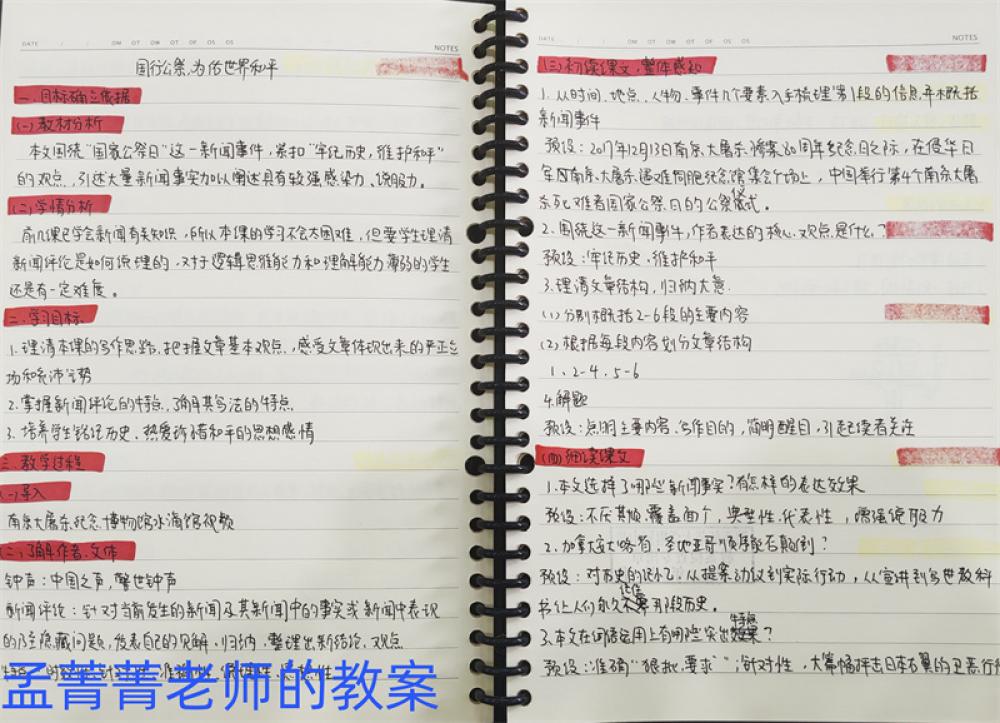 DATE / / OM OT OW OT OF OS OS
NOTES
国行公祭,为佑世界和平
一.目标确立依据
(一)教材分析
本文围绕"国家公祭日"这一新闻事件,紧扣"牢记历史,维护和平"
的观点,引述大量新闻事实加以阐述具有较强感染力、说服力。
(二)学情分析
前几课已学会新闻有关知识,所以本课的学习不会太困难,但要学生理清
新闻评论是如何说理的,对于逻辑思维能力和理解能力薄弱的学生
还是有一定难度。
二.学习目标
1.理清本课的写作思路,把握文章基本观点,感受文章体现出来的严正立
场和充沛气势
2.掌握新闻评论的特点,了解其写法的特点
3.培养学生铭记历史、热爱珍惜和平的思想感情
三.教学过程
(一)导入
南京大屠杀纪念博物馆水滴馆视频
(二)了解作者、文体
钟声:中国之声,警世钟声
新闻评论:针对当前发生的新闻及其新闻中的事实或新闻中表现
的隐藏问题,发表自己的见解,归纳、整理出新结论、观点
孟菁菁老师的教案
DATE / / OM OT OW OT OF OS OS
NOTES
(三)初读课文,整体感知
1.从时间、地点、人物、事件几个要素入手梳理第1段的信息,并概括
新闻事件
预设:2017年12月13日南京大屠杀惨案80周年纪念日之际,在侵华日
军南京大屠杀遇难同胞纪念馆集会广场上,中国举行第4个南京大屠
杀死难者国家公祭日的公祭仪式。
2.围绕这一新闻事件,作者表达的核心观点是什么?
预设:牢记历史,维护和平
3.理清文章结构,归纳大意.
(1)分别概括2-6段的主要内容
(2)根据每段内容划分文章结构
1、2-4、5-6
4.解题
预设:点明主要内容、写作目的,简明醒目,引起读者关注
(四)细读课文
1.本文选择了哪些新闻事实?有怎样的表达效果
预设:不厌其烦,覆盖面广,典型性、代表性,增强说服力
2.加拿大安大略省,圣地亚哥顺序能否颠倒?
预设:对历史的记忆,从提案动议到实际行动,从宣讲到写进教科
书让人们永久记住那段历史。
3.本文在词语运用上有哪些突出特点?
预设:准确"狠批,要求";针对性,大篇幅抨击日本右翼的丑恶行